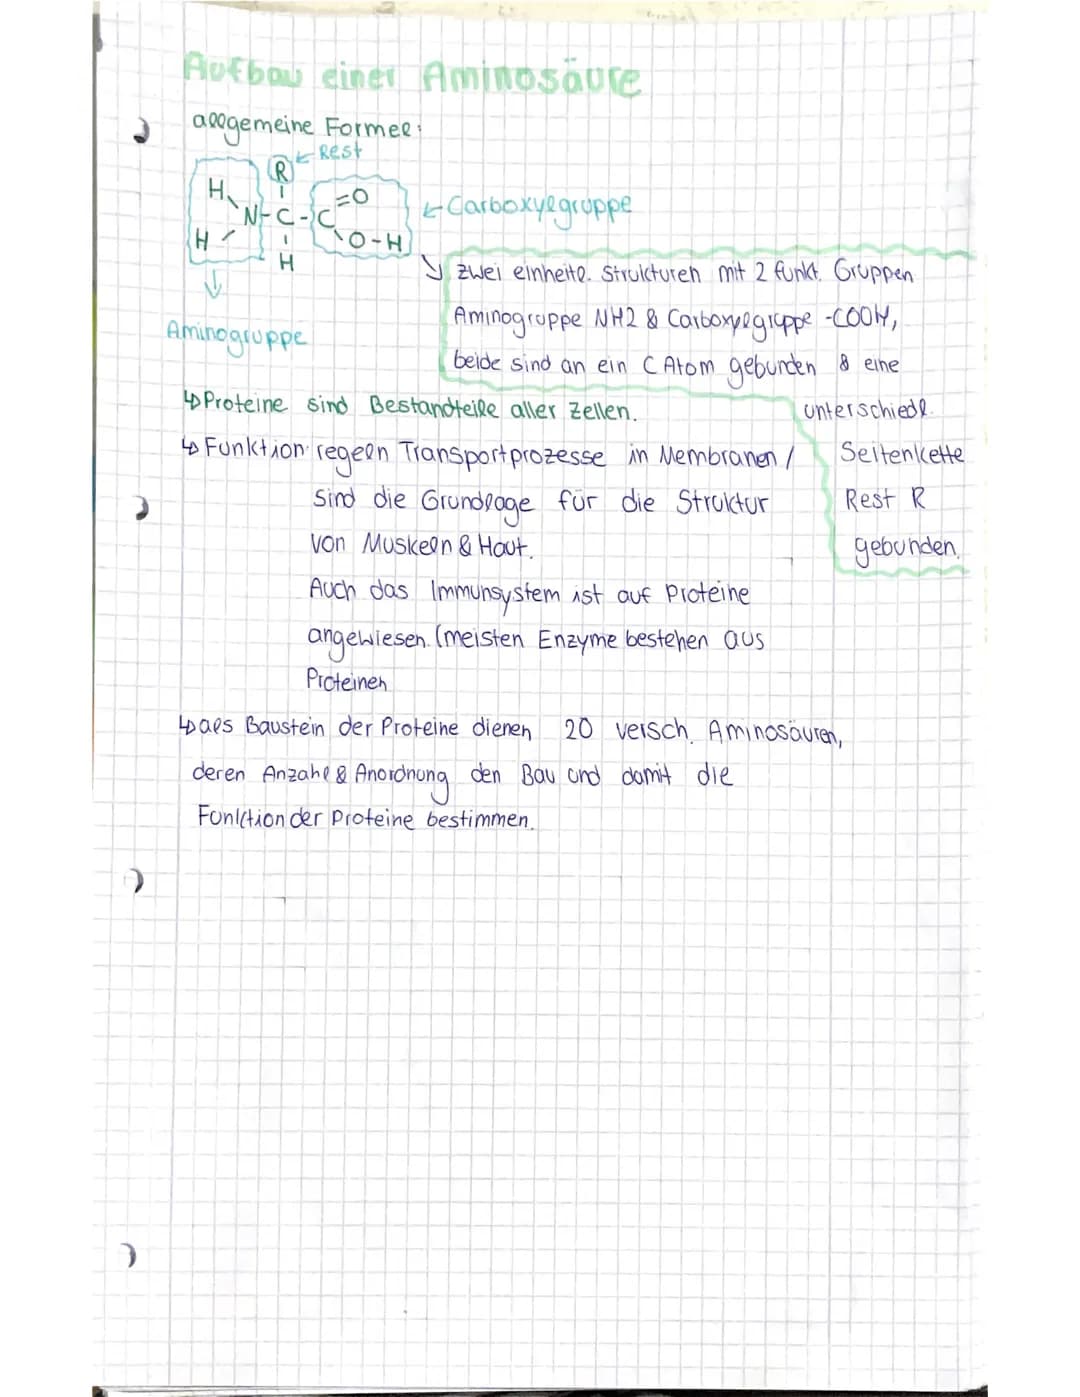 Aufbau einer Aminosäure
allgemeine Formel:
R ← Rest
H
N-C-C
=O
O-H
H
H
← Carboxylgruppe
Aminogruppe
zwei einheitl. Strukturen mit 2 funkt. Gruppen
Aminogruppe NH2 & Carboxylgruppe -COOH,
beide sind an ein C Atom gebunden & eine
unterschiedl.
Seitenkette
Rest R
gebunden.
↳Proteine sind Bestandteile aller Zellen.
↳Funktion: regeln Transportprozesse in Membranen /
sind die Grundlage für die Struktur
von Muskeln & Haut.
Auch das Immunsystem ist auf Proteine
angewiesen. (meisten Enzyme bestehen aus
Proteinen
↳als Baustein der Proteine dienen 20 versch. Aminosäuren,
deren Anzahl & Anordnung den Bau und damit die
Funktion der Proteine bestimmen.